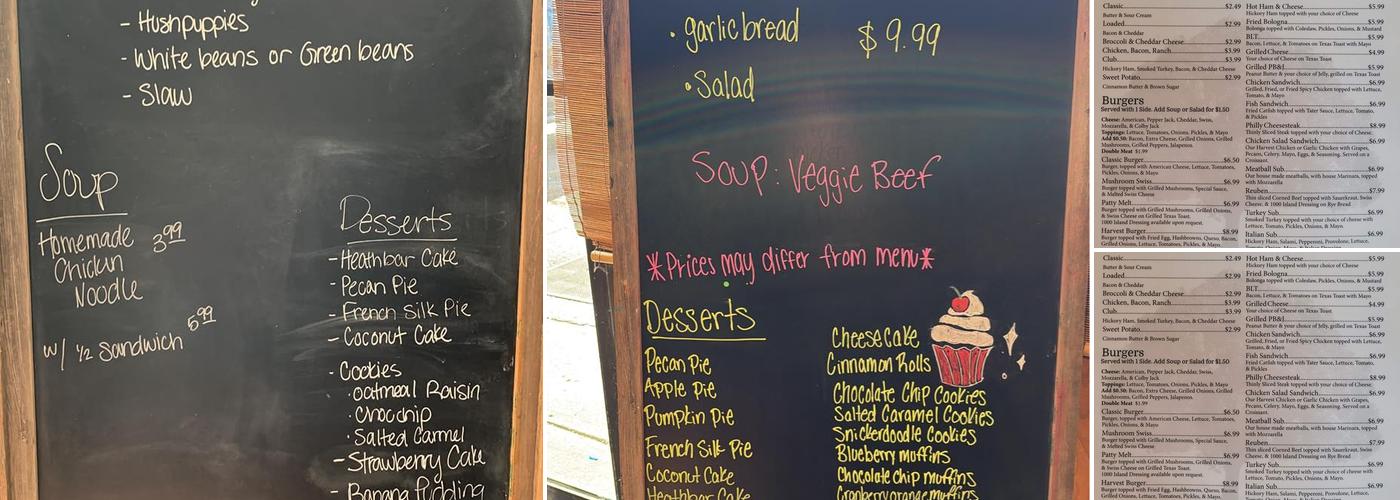 - Hushpuppies
- White beans or Green beans
- Slaw
Soup
Homemade
Chicken
Noodle
3.99
w/ 1/2 Sandwich
5.99
Desserts
- Heathbar Cake
- Pecan Pie
- French Silk Pie
- Coconut Cake
- Cookies
· oatmeal Raisin
· Choc chip
· Salted Carmel
- Strawberry Cake
- Banana Pudding
• garlic bread
$ 9.99
• Salad
Soup: Veggie Beef
*Prices may differ from menu*
Desserts
Pecan Pie
Apple Pie
Pumpkin Pie
French Silk Pie
Coconut Cake
Heathbar Cake
CheeseCake
Cinnamon Rolls
Chocolate Chip Cookies
Salted Caramel Cookies
Snickerdoodle Cookies
Blueberry muffins
Chocolate chip muffins
Cranberry orange muffins
Classic $2.49
Butter & Sour Cream
Loaded $2.99
Bacon & Cheddar
Broccoli & Cheddar Cheese $2.99
Chicken, Bacon, Ranch $3.99
Club $3.99
Hickory Ham, Smoked Turkey, Bacon, & Cheddar Cheese
Sweet Potato $2.99
Cinnamon Butter & Brown Sugar
Burgers
Served with 1 Side. Add Soup or Salad for $1.50
Cheese: American, Pepper Jack, Cheddar, Swiss,
Mozzarella, & Colby Jack
Toppings: Lettuce, Tomatoes, Onions, Pickles, & Mayo
Add $0.50: Bacon, Extra Cheese, Grilled Onions, Grilled
Mushrooms, Grilled Peppers, Jalapenos
Double Meat $1.99
Classic Burger $6.50
Burger, topped with American Cheese, Lettuce, Tomatoes,
Pickles, Onions, & Mayo
Mushroom Swiss $6.99
Burger topped with Grilled Mushrooms, Special Sauce,
& Melted Swiss Cheese
Patty Melt $6.99
Burger topped with Grilled Mushrooms, Grilled Onions,
& Swiss Cheese on Grilled Texas Toast.
1000 Island Dressing available upon request.
Harvest Burger $8.99
Burger topped with Fried Egg, Hashbrowns, Queso, Bacon,
Grilled Onions, Lettuce, Tomatoes, Pickles, & Mayo.
Hot Ham & Cheese $5.99
Hickory Ham topped with your choice of Cheese
Fried Bologna $5.99
Bologna topped with Coleslaw, Pickles, Onions, & Mustard
BLT $5.99
Bacon, Lettuce, & Tomatoes on Texas Toast with Mayo
Grilled Cheese $4.99
Your choice of Cheese on Texas Toast
Grilled PB&J $5.99
Peanut Butter & your choice of Jelly, grilled on Texas Toast
Chicken Sandwich $6.99
Grilled, Fried, or Fried Spicy Chicken topped with Lettuce,
Tomato, & Mayo
Fish Sandwich $6.99
Fried Catfish topped with Tater Sauce, Lettuce, Tomato,
& Pickles
Philly Cheesesteak $8.99
Thinly Sliced Steak topped with your choice of Cheese.
Chicken Salad Sandwich $6.99
Our Harvest Chicken or Garlic Chicken with Grapes,
Pecans, Celery, Mayo, Eggs, & Seasoning. Served on a
Croissant.
Meatball Sub $6.99
Our house made meatballs, with house Marinara, topped
with Mozzarella
Reuben $7.99
Thin sliced Corned Beef topped with Sauerkraut, Swiss
Cheese, & 1000 Island Dressing on Rye Bread
Turkey Sub $6.99
Smoked Turkey topped with your choice of cheese with
Lettuce, Tomatoes, Onions, Pickles, & Mayo
Italian Sub $6.99
Hickory Ham, Salami, Pepperoni, Provolone, Lettuce,
Classic $2.49
Butter & Sour Cream
Loaded $2.99
Bacon & Cheddar
Broccoli & Cheddar Cheese $2.99
Chicken, Bacon, Ranch $3.99
Club $3.99
Hickory Ham, Smoked Turkey, Bacon, & Cheddar Cheese
Sweet Potato $2.99
Cinnamon Butter & Brown Sugar
Burgers
Served with 1 Side. Add Soup or Salad for $1.50
Cheese: American, Pepper Jack, Cheddar, Swiss,
Mozzarella, & Colby Jack
Toppings: Lettuce, Tomatoes, Onions, Pickles, & Mayo
Add $0.50: Bacon, Extra Cheese, Grilled Onions, Grilled
Mushrooms, Grilled Peppers, Jalapenos
Double Meat $1.99
Classic Burger $6.50
Burger, topped with American Cheese, Lettuce, Tomatoes,
Pickles, Onions, & Mayo
Mushroom Swiss $6.99
Burger topped with Grilled Mushrooms, Special Sauce,
& Melted Swiss Cheese
Patty Melt $6.99
Burger topped with Grilled Mushrooms, Grilled Onions,
& Swiss Cheese on Grilled Texas Toast.
1000 Island Dressing available upon request.
Harvest Burger $8.99
Burger topped with Fried Egg, Hashbrowns, Queso, Bacon,
Grilled Onions, Lettuce, Tomatoes, Pickles, & Mayo.
Hot Ham & Cheese $5.99
Hickory Ham topped with your choice of Cheese
Fried Bologna $5.99
Bologna topped with Coleslaw, Pickles, Onions, & Mustard
BLT $5.99
Bacon, Lettuce, & Tomatoes on Texas Toast with Mayo
Grilled Cheese $4.99
Your choice of Cheese on Texas Toast
Grilled PB&J $5.99
Peanut Butter & your choice of Jelly, grilled on Texas Toast
Chicken Sandwich $6.99
Grilled, Fried, or Fried Spicy Chicken topped with Lettuce,
Tomato, & Mayo
Fish Sandwich $6.99
Fried Catfish topped with Tater Sauce, Lettuce, Tomato,
& Pickles
Philly Cheesesteak $8.99
Thinly Sliced Steak topped with your choice of Cheese.
Chicken Salad Sandwich $6.99
Our Harvest Chicken or Garlic Chicken with Grapes,
Pecans, Celery, Mayo, Eggs, & Seasoning. Served on a
Croissant.
Meatball Sub $6.99
Our house made meatballs, with house Marinara, topped
with Mozzarella
Reuben $7.99
Thin sliced Corned Beef topped with Sauerkraut, Swiss
Cheese, & 1000 Island Dressing on Rye Bread
Turkey Sub $6.99
Smoked Turkey topped with your choice of cheese with
Lettuce, Tomatoes, Onions, Pickles, & Mayo
Italian Sub $6.99
Hickory Ham, Salami, Pepperoni, Provolone, Lettuce,